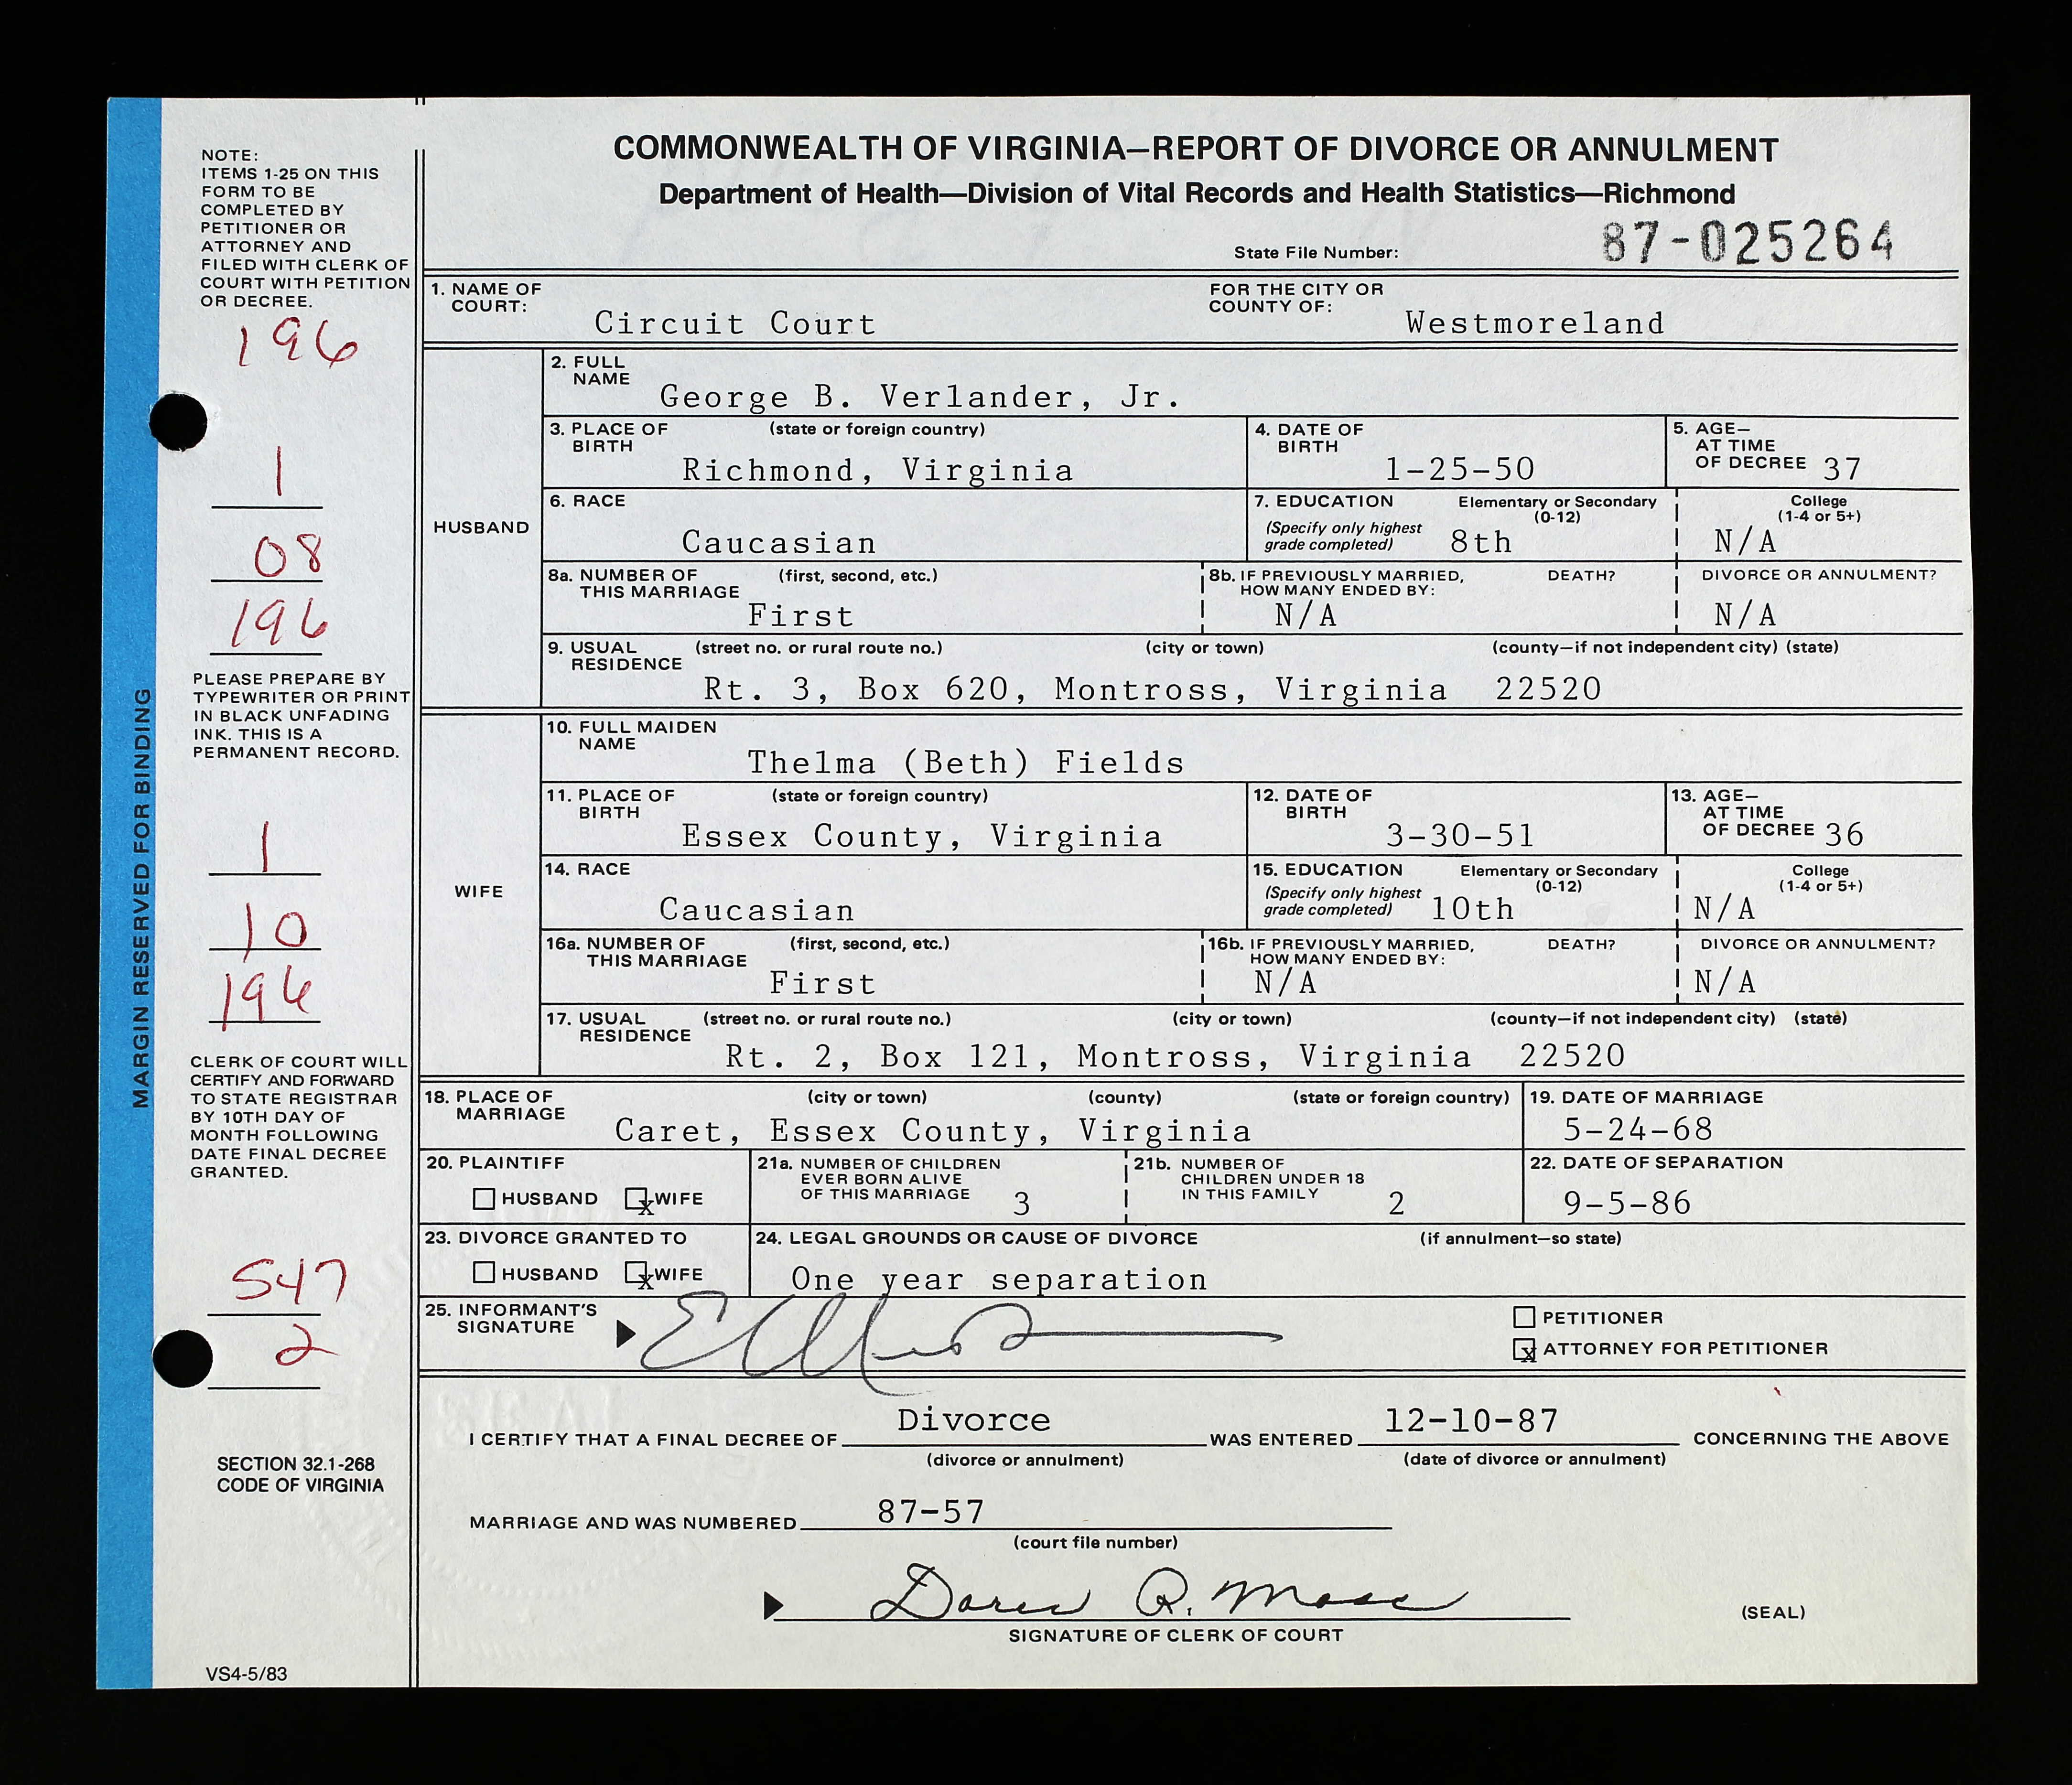 COMMONWEALTH OF VIRGINIA—REPORT OF DIVORCE OR ANNULMENT
Department of Health—Division of Vital Records and Health Statistics—Richmond
State File Number: 87-025264
MARGIN RESERVED FOR BINDING
NOTE:
ITEMS 1-25 ON THIS
FORM TO BE
COMPLETED BY
PETITIONER OR
ATTORNEY AND
FILED WITH CLERK OF
COURT WITH PETITION
OR DECREE.
196
1
08
196
PLEASE PREPARE BY
TYPEWRITER OR PRINT
IN BLACK UNFADING
INK. THIS IS A
PERMANENT RECORD.
1
10
196
CLERK OF COURT WILL
CERTIFY AND FORWARD
TO STATE REGISTRAR
BY 10TH DAY OF
MONTH FOLLOWING
DATE FINAL DECREE
GRANTED.
547
2
SECTION 32.1-268
CODE OF VIRGINIA
VS4-5/83
1. NAME OF COURT: Circuit Court FOR THE CITY OR COUNTY OF: Westmoreland
HUSBAND
2. FULL NAME George B. Verlander, Jr.
3. PLACE OF BIRTH (state or foreign country) Richmond, Virginia
4. DATE OF BIRTH 1-25-50
5. AGE— AT TIME OF DECREE 37
6. RACE Caucasian
7. EDUCATION (Specify only highest grade completed) Elementary or Secondary (0-12) 8th College (1-4 or 5+) N/A
8a. NUMBER OF THIS MARRIAGE (first, second, etc.) First
8b. IF PREVIOUSLY MARRIED, HOW MANY ENDED BY: DEATH? N/A DIVORCE OR ANNULMENT? N/A
9. USUAL RESIDENCE (street no. or rural route no.) (city or town) (county—if not independent city) (state)
Rt. 3, Box 620, Montross, Virginia 22520
WIFE
10. FULL MAIDEN NAME Thelma (Beth) Fields
11. PLACE OF BIRTH (state or foreign country) Essex County, Virginia
12. DATE OF BIRTH 3-30-51
13. AGE— AT TIME OF DECREE 36
14. RACE Caucasian
15. EDUCATION (Specify only highest grade completed) Elementary or Secondary (0-12) 10th College (1-4 or 5+) N/A
16a. NUMBER OF THIS MARRIAGE (first, second, etc.) First
16b. IF PREVIOUSLY MARRIED, HOW MANY ENDED BY: DEATH? N/A DIVORCE OR ANNULMENT? N/A
17. USUAL RESIDENCE (street no. or rural route no.) (city or town) (county—if not independent city) (state)
Rt. 2, Box 121, Montross, Virginia 22520
18. PLACE OF MARRIAGE (city or town) (county) (state or foreign country) Caret, Essex County, Virginia
19. DATE OF MARRIAGE 5-24-68
20. PLAINTIFF HUSBAND x WIFE
21a. NUMBER OF CHILDREN EVER BORN ALIVE OF THIS MARRIAGE 3
21b. NUMBER OF CHILDREN UNDER 18 IN THIS FAMILY 2
22. DATE OF SEPARATION 9-5-86
23. DIVORCE GRANTED TO HUSBAND x WIFE
24. LEGAL GROUNDS OR CAUSE OF DIVORCE (if annulment—so state) One year separation
25. INFORMANT'S SIGNATURE
PETITIONER
x ATTORNEY FOR PETITIONER
I CERTIFY THAT A FINAL DECREE OF Divorce WAS ENTERED 12-10-87 CONCERNING THE ABOVE
(divorce or annulment) (date of divorce or annulment)
MARRIAGE AND WAS NUMBERED 87-57
(court file number)
R.
SIGNATURE OF CLERK OF COURT
(SEAL)